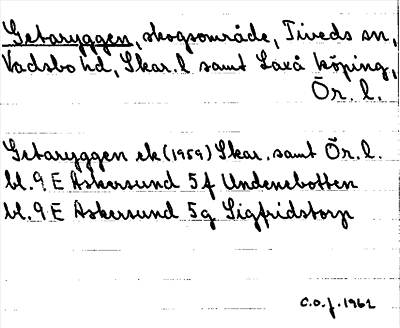 Getaryggen, skogsområde, Tiveds sn,
Vadsbo hd, Skar. l samt Laxå köping,
Ör. l.
Getaryggen ek (1959) Skar. samt Ör. l.
bl. 9 E Askersund 5 f Undenebotten
bl. 9 E Askersund 5 g Sigfridstorp
C.O.f. 1962